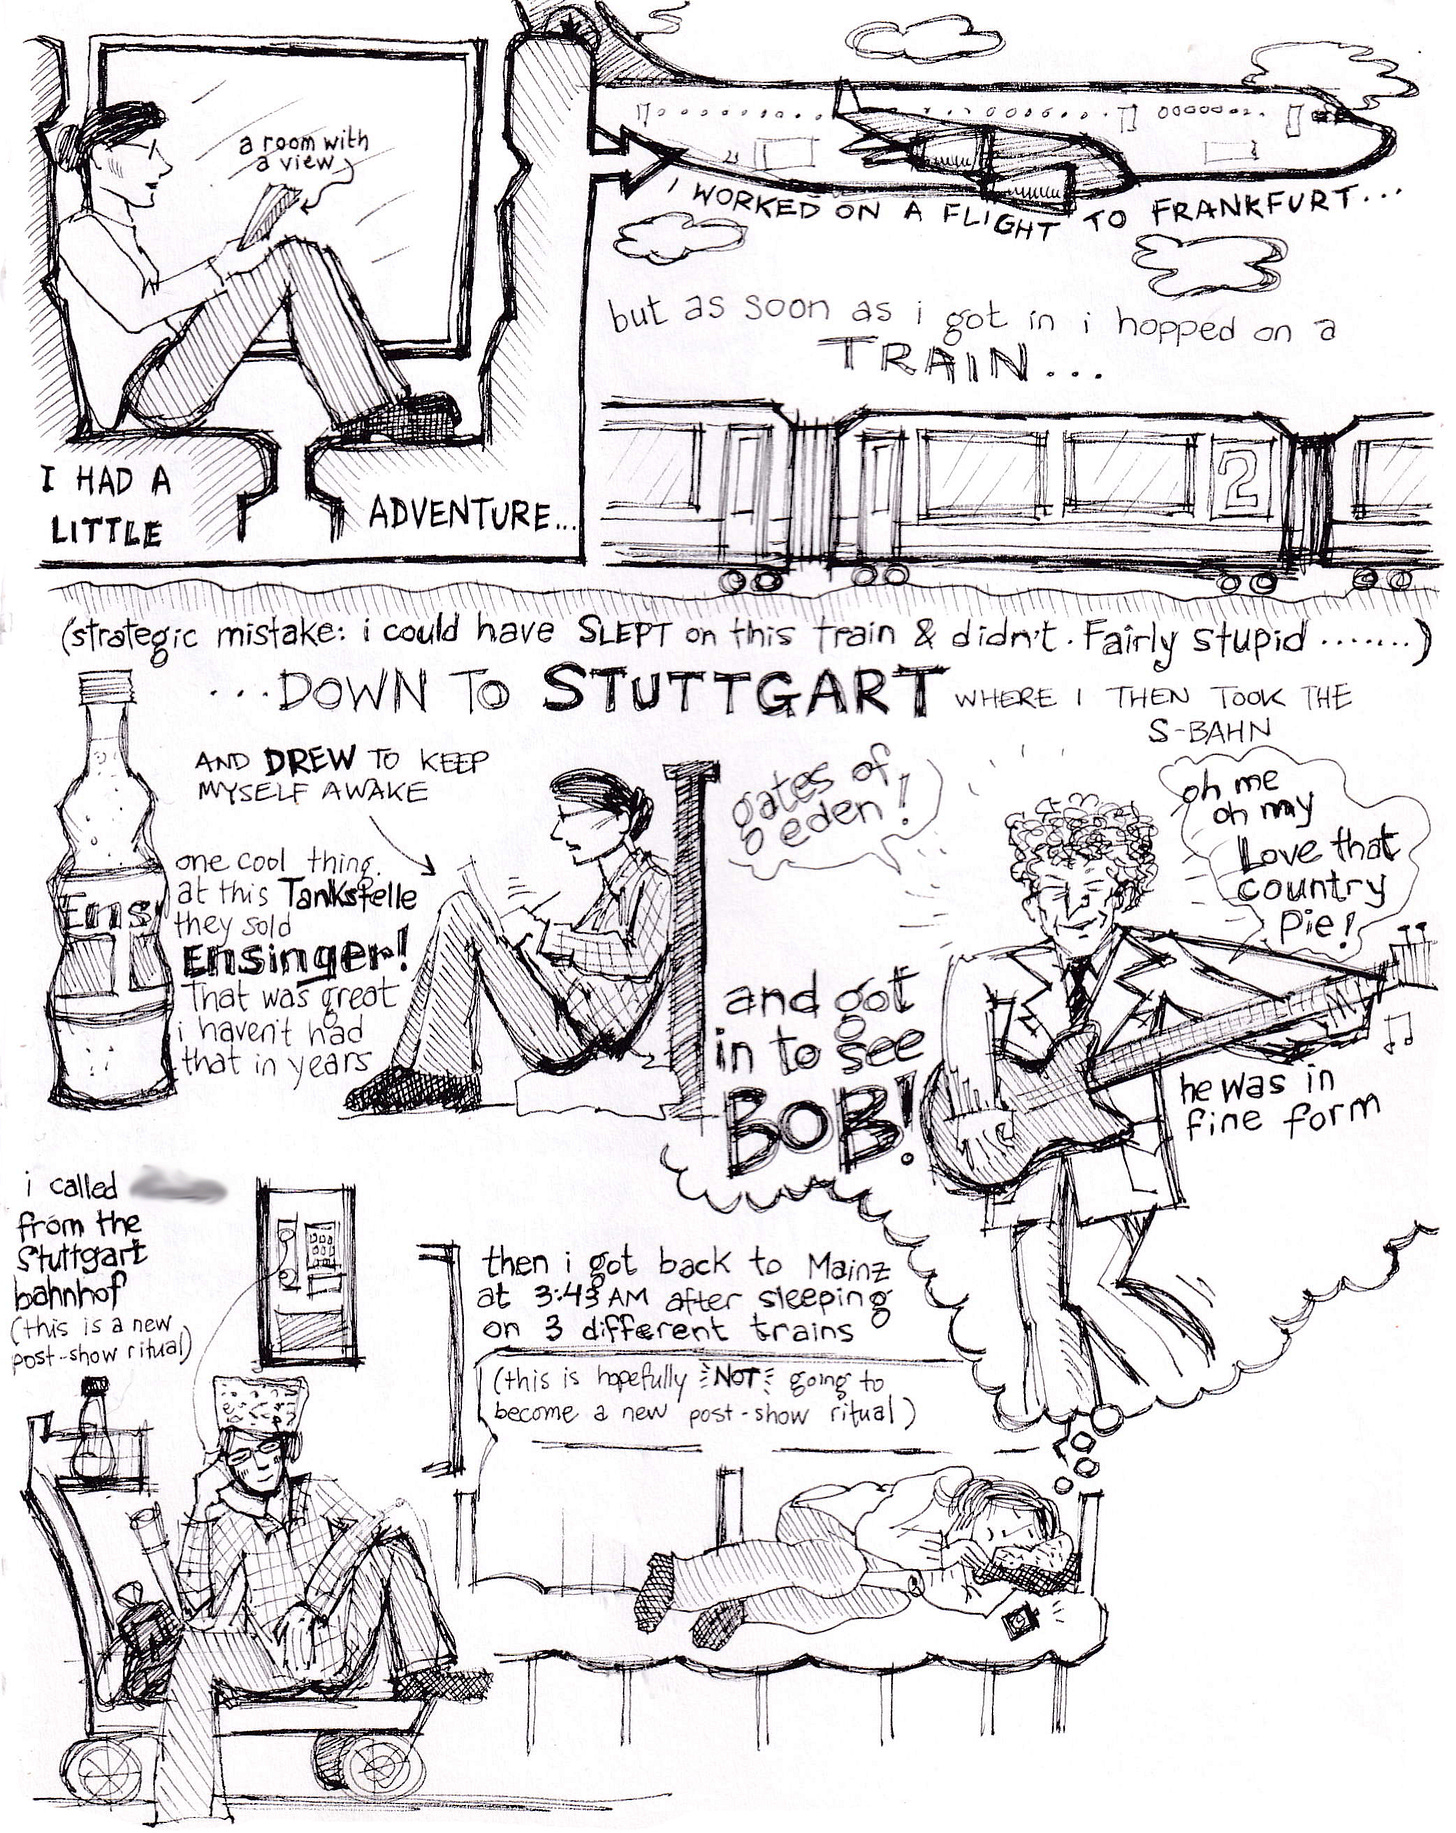 a room with
a view
I HAD A
LITTLE
ADVENTURE...
I WORKED ON A FLIGHT TO FRANKFURT...
but as soon as i got in i hopped on a
TRAIN...
2
(strategic mistake: i could have SLEPT on this train & didn't. Fairly stupid .......)
...DOWN TO STUTTGART WHERE I THEN TOOK THE
S-BAHN
AND DREW TO KEEP
MYSELF AWAKE
Ens
one cool thing.
at this Tankstelle
they sold
Ensinger!
That was great
i haven't had
that in years
gates of
eden!
oh me
oh my
Love that
country
Pie!
and got
in to see
BOB!
he was in
fine form
i called
from the
Stuttgart
bahnhof
(this is a new
post-show ritual)
then i got back to Mainz
at 3:43 AM after sleeping
on 3 different trains
(this is hopefully NOT going to
become a new post-show ritual)